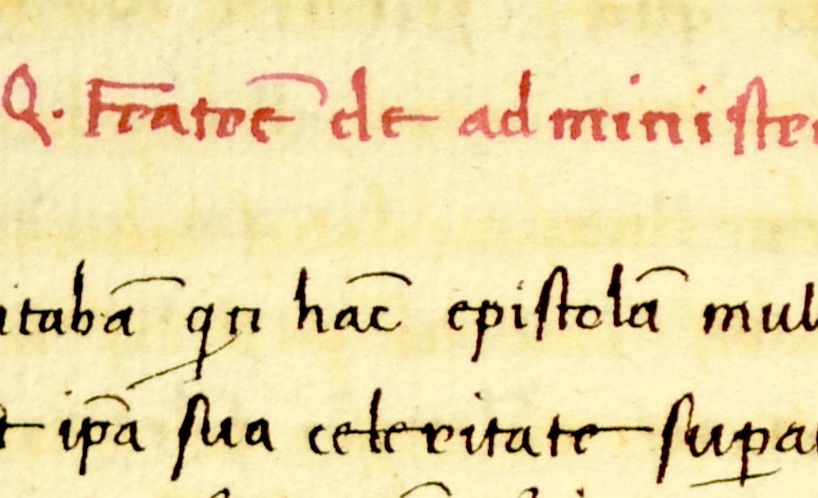 Q. Fratrē de administr
itabā qn hāc epistolā mul
t ip̄a sua celeritate sup̱a